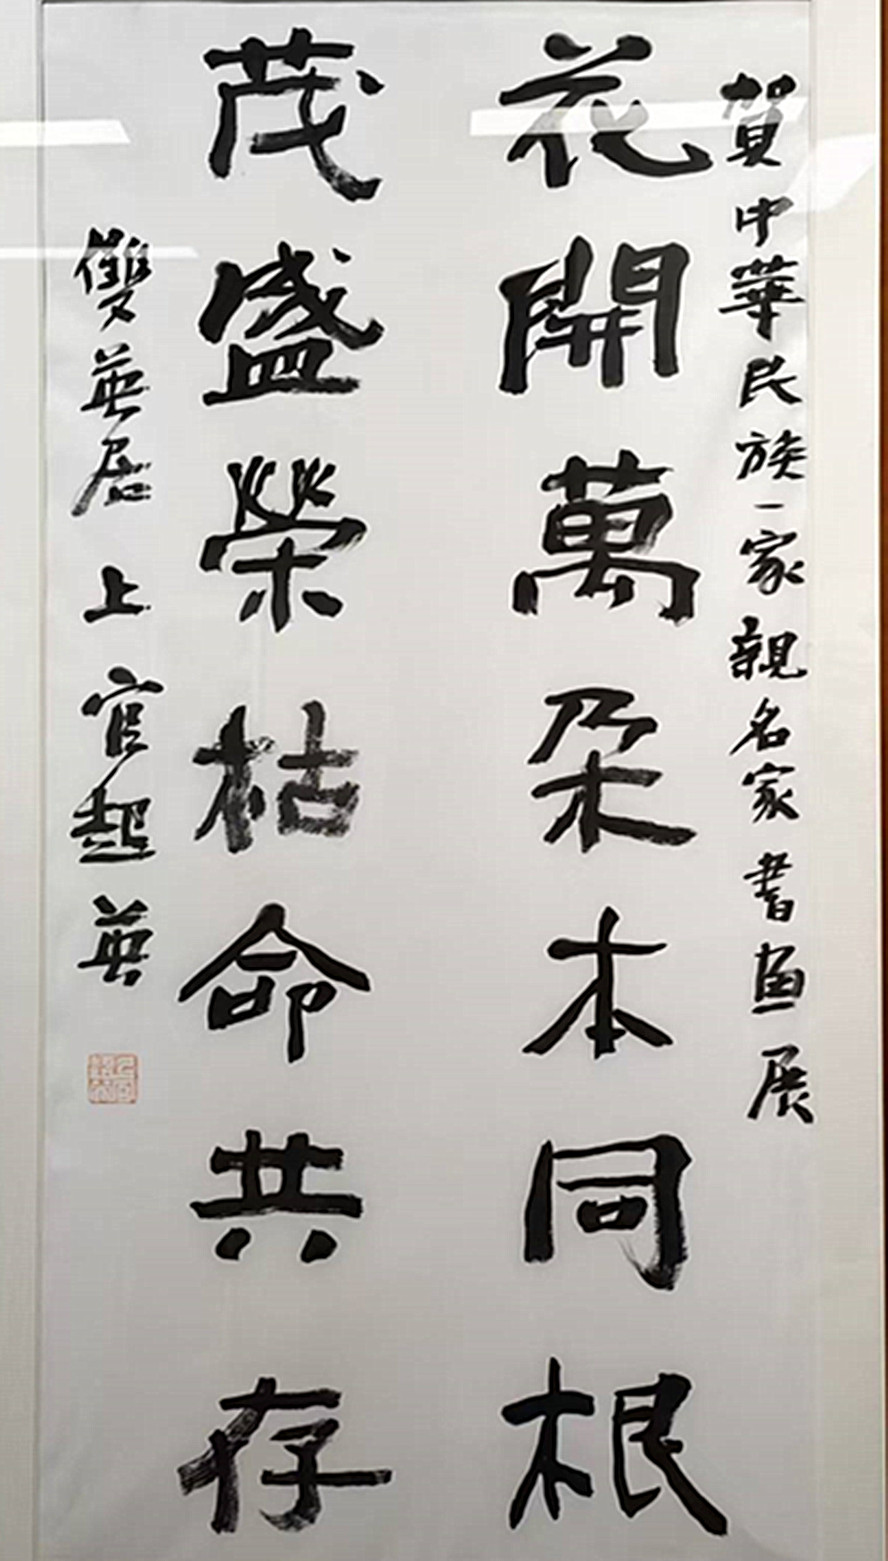 賀中華民族一家親名家書畫展
花開萬朵本同根
茂盛榮枯命共存
雙英居 上官超英